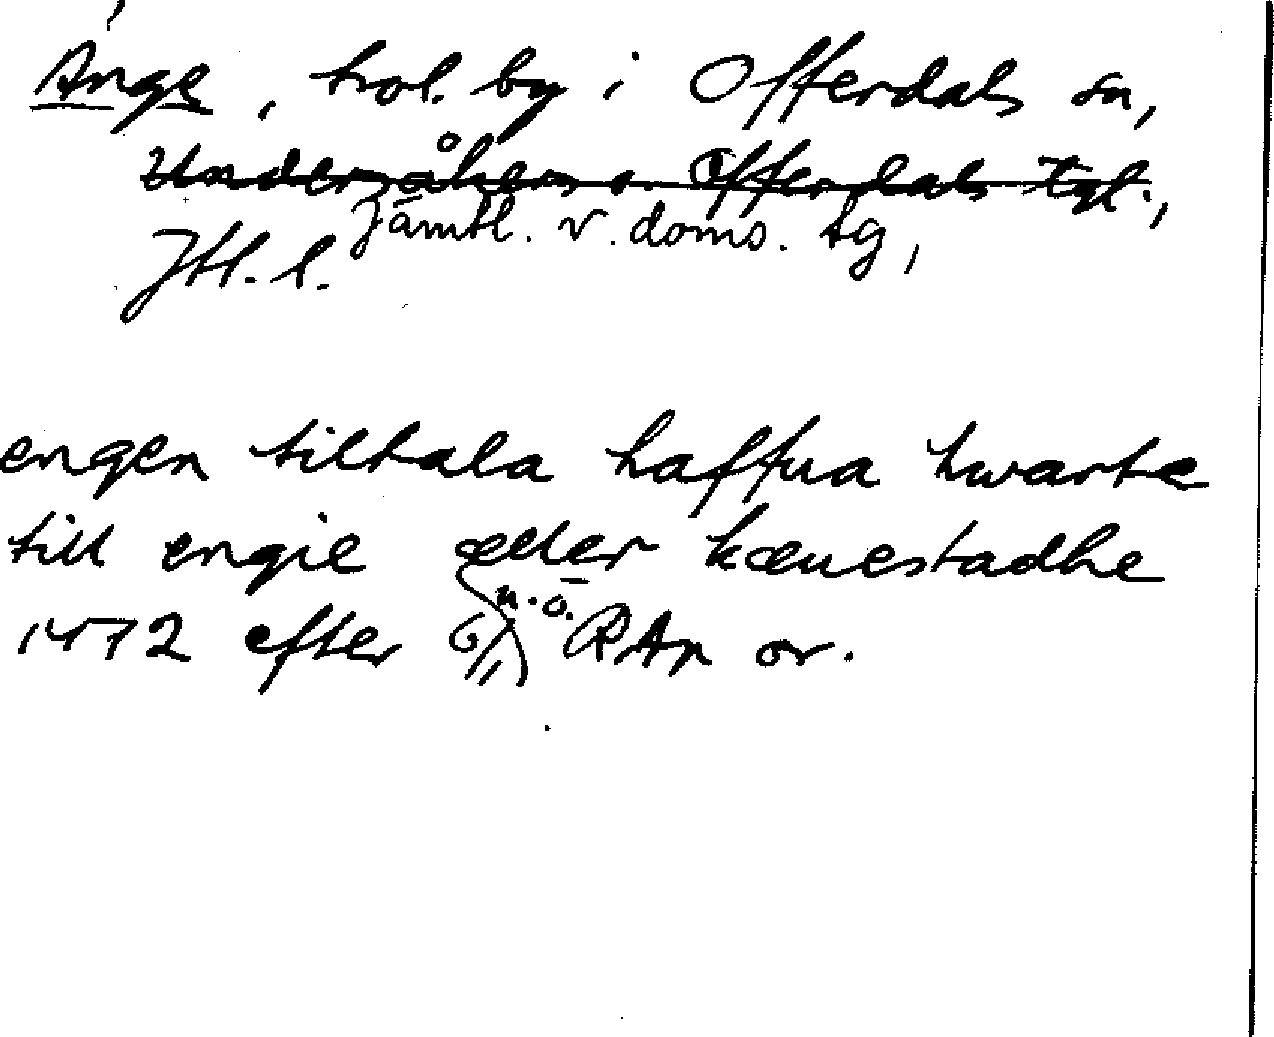 Änge, trol. by i Offerdals sn,
Undersåkers o. Offerdals tgl.,
Jämtl. v. doms. tg,
Jtl. l.
engen tiltala haffua hwarte
till engie æller kæuestadhe
1472 efter 6/11 n.ö. RAp or.